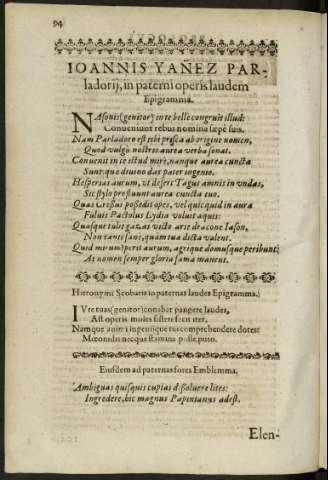 94
IOANNIS YAÑEZ PAR-
ladorij, in paterni operis laudem
Epigramma.
NAsonis (genitor) in te belle congruit illud:
Conveniunt rebus nomina sæpe suis.
Nam Parladoro est tibi prisca ab origine nomen,
Quod vulgò nostros aurea verba sonat.
Convenit in te istud mirè, nanque aurea cuncta
Sunt: quæ divino das pater ingenio.
Hesperias aurum, vt defert Tagus amnis in vndas,
Sic stylo profluunt aurea cuncta tuo.
Quas Crœsus possedit opes, vel quicquid in aura
Fuluis Pactolus Lydia voluit aquis:
Quasque tulit gazas victo arte dracone Iason,
Non tanti sunt, quàm tua dicta valent.
Quid mirum? perit aurum, agrique domusque peribunt;
At nomen semper gloria fama manent.
Hieronymi Scobaris in paternas laudes Epigramma.
IVre tuas (genitor) conabar pangere laudes,
Ast operis moles sistere fecit iter.
Namque animi ingenijque tui comprehendere dotes
Mœonidis nec quæ stamina posse puto.
Eiusdem ad paternas fores Emblemma.
Ambiguas quisquis cupias dissoluere lites:
Ingredere, hic magnus Papinianus adest.
Elen-